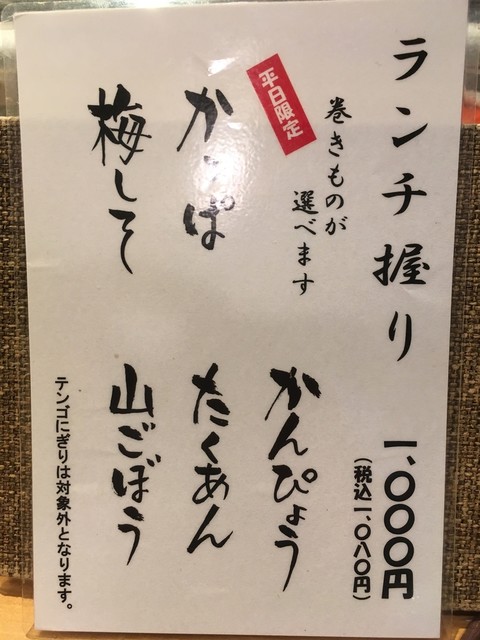 ランチ握り 一、〇〇〇円
(税込一、〇八〇円)
巻きものが
選べます
平日限定
かんぴょう
かっぱ
たくあん
梅しそ
山ごぼう
テンゴにぎりは対象外となります。